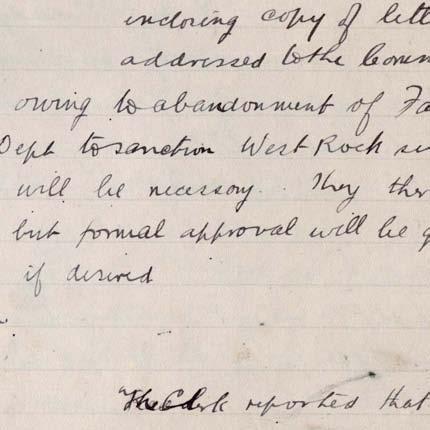 enclosing copy of lett
addressed to the Comm
owing to abandonment of Fa
Dept to sanction West Rock su
will be necessary. They ther
but formal approval will be g
if desired
The Clerk reported that